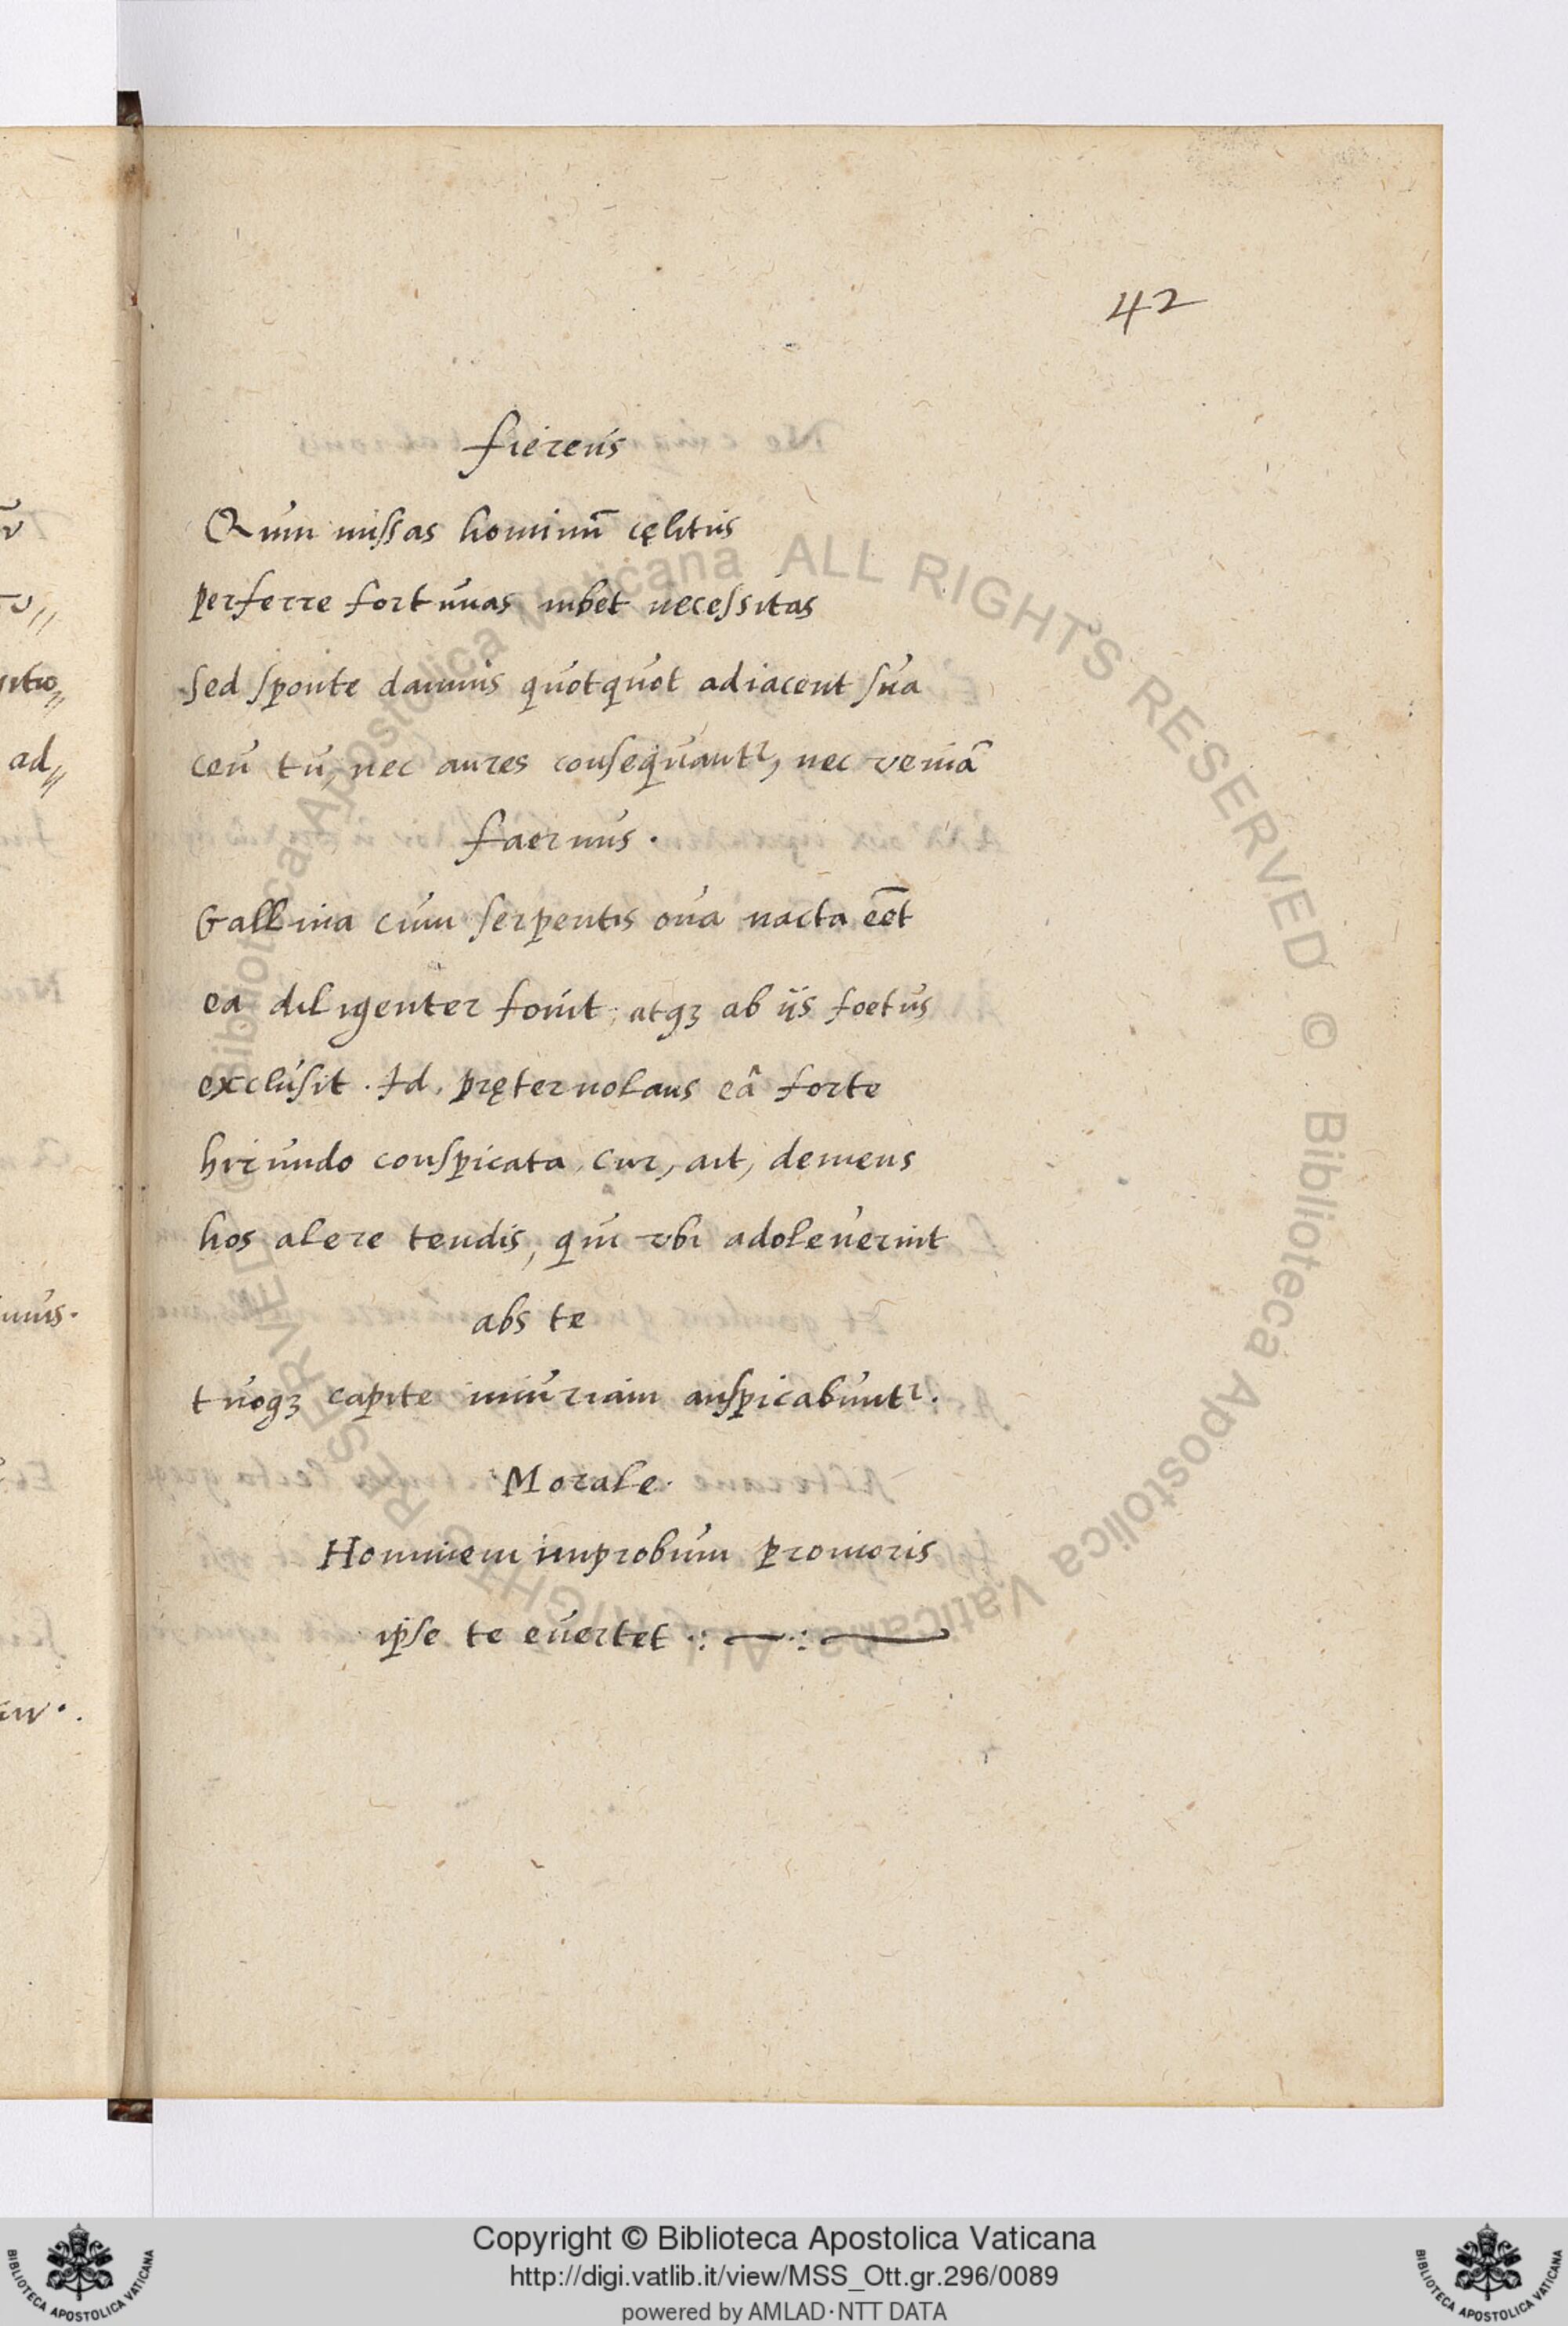 42
fiereus
Qum missas hominũ cęlitus
perferre fortunas iubet necessitas
sed sponte damnis quotquot adiacent sua
ceu tu, nec aures consequantr, nec veniã
faernus.
Gallina cum serpentis oua nacta eēt
ea diligenter fouit, atqꝫ ab ijs foetus
exclusit. Id. pręteruolans eâ forte
hirundo conspicata, cur, ait, demens
hos alere tendis, qui vbi adoleuerint
abs te
tuoqꝫ capite iniuriam auspicabuntr.
Morale.
Hominem improbum promoris
ipse te euertet
ad
Copyright © Biblioteca Apostolica Vaticana
http://digi.vatlib.it/view/MSS_Ott.gr.296/0089
powered by AMLAD·NTT DATA
BIBLIOTECA APOSTOLICA VATICANA
BIBLIOTECA APOSTOLICA VATICANA
Biblioteca Apostolica Vaticana ALL RIGHTS RESERVED © Biblioteca Apostolica Vaticana ALL RIGHTS RESERVED ©